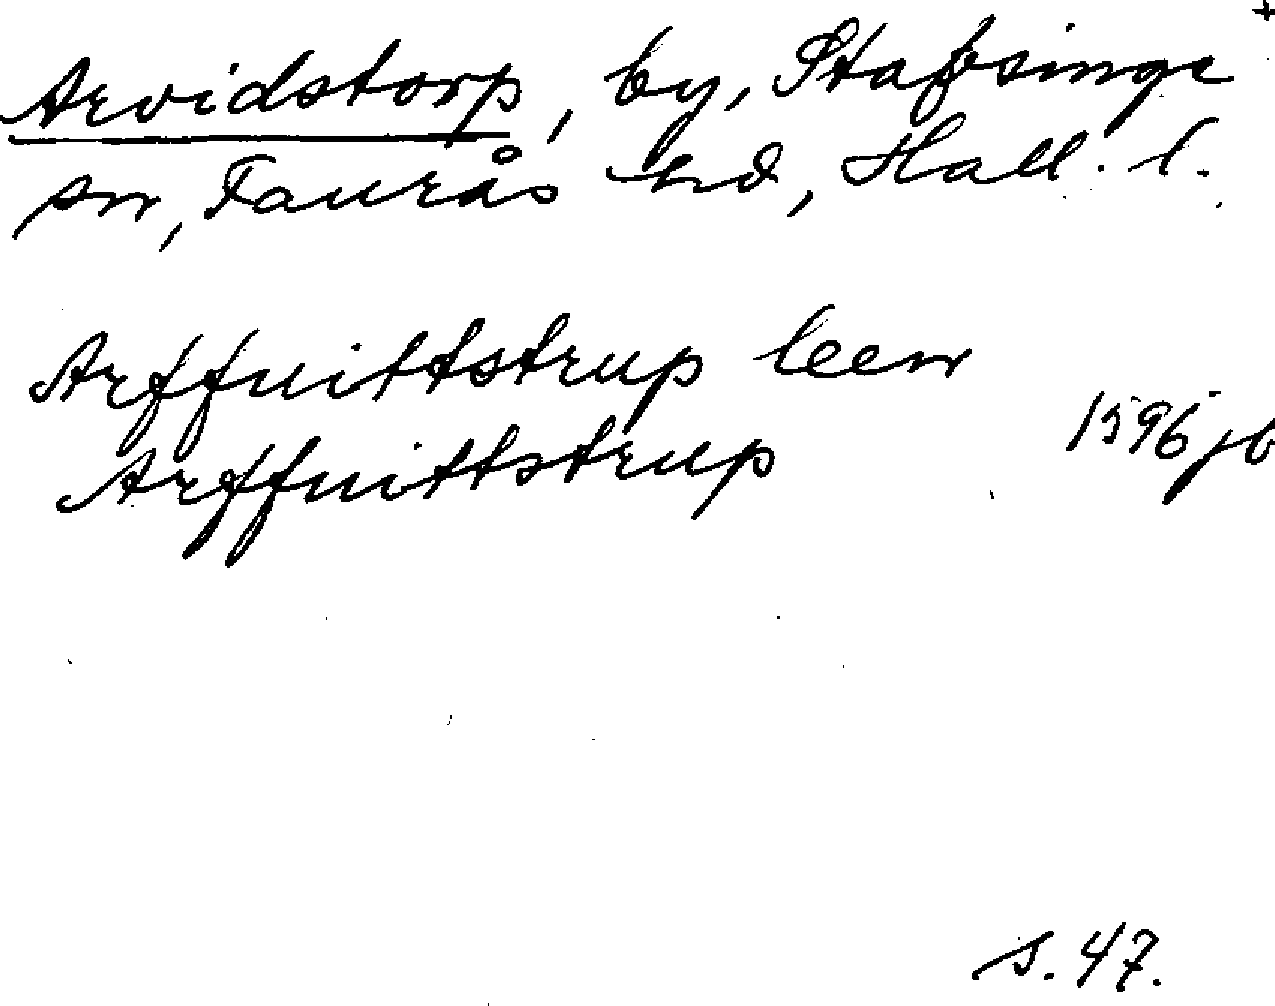 +
Arvidstorp, by, Stafsinge
sn, Faurås hd, Hall. l.
Arffuittstrup leen
1596 jb
Arffuittstrup
s. 47.